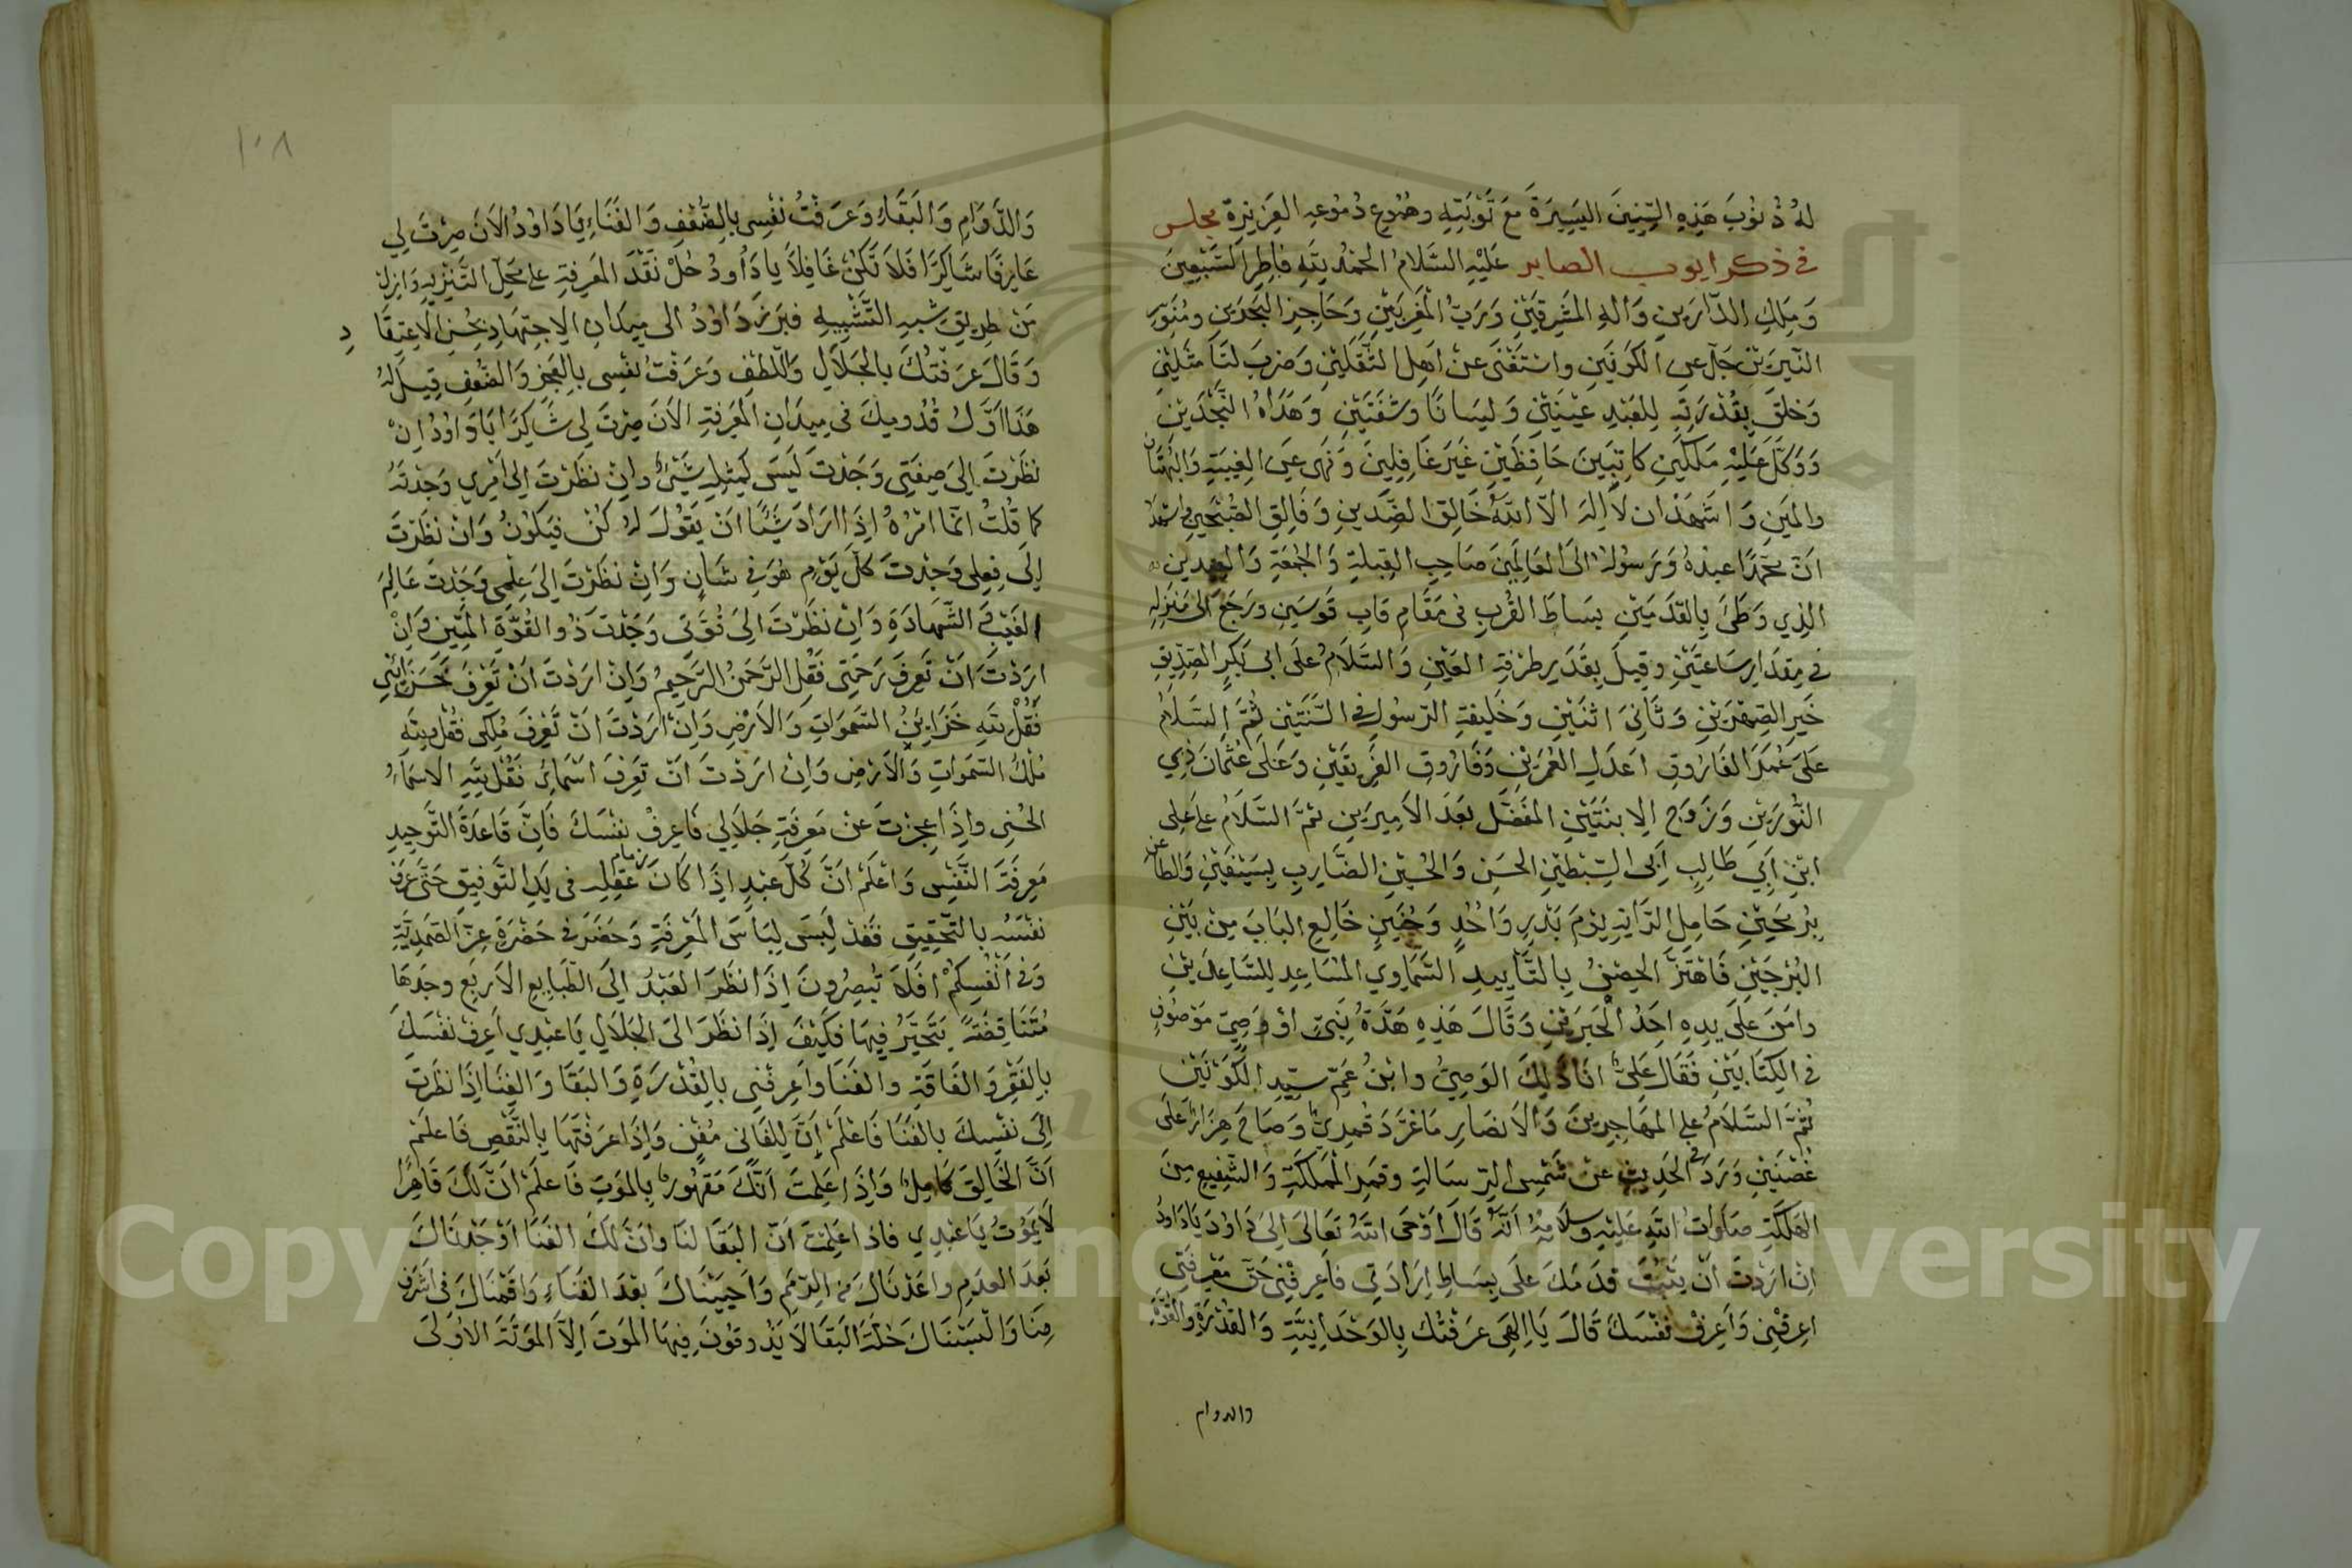 لَهُ ذُنُوبَ هَذِهِ السِّنِينَ اليَسِيرَةَ مَعَ تَوْبَتِهِ وهُمُوعِ دُمُوعِهِ الغَزِيرَةِ مجلس
في ذكر ايوب الصابر عَلَيْهِ السَّلَامُ الحَمْدُ لِلَّهِ فَاطِرِ السَّبْعِينَ
وَمَلِكِ الدَّارَيْنِ وَالهِ المَشْرِقَيْنِ وَرَبُّ المَغْرِبَيْنِ وَحَاجِزِ البَحْرَيْنِ ومُنَوِّرِ
النَّيِّرَيْنِ جَلَّ عن الكَوْنَيْنِ واسْتَغْنَى عَنْ اَهْلِ الثَّقَلَيْنِ وَضَرَبَ لَنَا مَثَلَيْنِ
وَخَلَقَ بِقُدْرَتِهِ لِلعَبْدِ عَيْنَيْنِ وَلِسَانًا وشَفَتَيْنِ وَهَدَاهُ النَّجْدَيْنِ
وَوَكَّلَ عَلَيْهِ مَلَكَيْنِ كَاتِبَيْنَ حَافِظَيْنِ غَيْرَ غَافِلِينَ وَنَهَى عَنِ الغِيبَةِ وَالبُهْتَان
والمَيْنِ وَاشَهَدُ ان لَا اِلهَ الّا اللَّهُ خَالِقُ الضِّدَّيْنِ وَفَالِقِ الصُّبْحَيْنِ واشهد
انَّ مُحَمَّدًا عبْدُهُ وَرَسُولُهُ الَى العَالَمِينَ صَاحِبِ القِبْلَةِ وَالجُمْعَةِ وَالعِيدين
الذِي وَطَئَ بِالقَدَمَيْنِ بِسَاطَ القُرْبِ في مَقَامِ قَابِ قَوسَيْنِ ورَجَعَ الى مَنْزِلِهِ
في مِقدَارِ سَاعَتَيْنِ وقِيلَ بِقَدْرِ طَرْفَةِ العَيْنِ وَالسَّلَامُ عَلَى ابي بَكْرِ الصِّدِّيقِ
خَيرِ الصِّهْرَيْنِ وَثَانِيَ اثْنَيْنِ وَخَلِيفَةِ الرّسُولِ في السُّنَّتَيْنِ ثُمَّ السَّلَامُ
عَلَى عُمَرَ الفَارُوقِ اعدَلِ العُمَرَيْنِ وَفَارُوقِ الفَرِيقَيْنِ وَعَلَى عُثمَانَ ذِي
النُّورَيْنِ وَزَوْجِ الِابنَتَيْنِ المُفَضَّلِ بَعْدَ الاَمِيرَينِ ثمَّ السَّلَامُ على عَلِي
ابْنِ اَبِي طَالِبٍ اَبى السِّبْطَيْنِ الحَسَنِ وَالحُسَيْنِ الضَّارِبِ بِسَيْفَيْنِ وَالطَّاعن
بِرُمْحَيْنِ حَامِلِ الرَّايَةِ يَوْمَ بَدْرٍ وَاُحُدٍ وَحُنَيْنٍ خَالِعِ البَابَ مِنْ بَيْنِ
البُرْجَيْنِ فَاهْتَزَّ الحِصْنُ بِالتَّأيِيدِ السَّمَاوِي المُسَاعِدِ لِلسَّاعِدَيْنِ
وامَنَ عَلَى يدِهِ احَدُ الْحَبرَيْنِ وَقَالَ هَذِهِ هَدَّةُ نَبِىّ اوْ وَصِيّ مَوْصُوفٍ
فى الكِتَابَيْنِ فَقَالَ عَلِىٌّ انَا ذَلِكَ الوَصِىُّ وابْنُ عَمِّ سَيِّدِ الكَوْنَيْنِ
ثُمَّ السَّلَامُ على المُهَاجِرِينَ وَالانصَارِ مَا غَرَّدَ قُمْرِىٌّ وَصَاحَ هِزَارٌ عَلَى
غُصْنَيْنِ وَرَدَ في الحَدِيثِ عَنْ شَمْسِ الرِّسَالَةِ وقَمَرِ المَمْلَكَةِ وَالشَّفِيعِ مِنَ
الهَلَكَةِ صَلَوَاتُ اللهِ عَلَيْهِ وسلَامُهُ اَنَّهُ قَالَ اَوْحَى اللّهُ تَعَالَى الَى دَاوُدَ يَا دَاوُدُ
انْ ارَدْتَ انْ يَثْبُتَ قدَمَكَ عَلَى بِسَاطِ اِرَادَتِي فَاعرِفْنِي حَقَّ مَعْرِفَتِى
اعِرفْنِى وَاَعرِفْ نَفْسَكَ قَالَ يَا اِلهِى عَرَفْتُكَ بِالوَحْدَانِيَّةِ وَالقُدْرَةِ والقُوَّةِ
والدوام
١٠٨
وَالدَّوَامِ وَالبَقَاءِ وَعَرَفْتُ نَفْسِى بِالضُّعْفِ وَالفَنَاءِ يَا دَاوُدُ الاَنَ صِرْتَ لِي
عَارِفًا شَاكِرًا فَلاَ تَكُنْ غَافِلاً يا دَاوُدُ حُلْ نَقْدَ المَعْرِفَةِ على مَحَلِّ التَّنْزِيهِ وَانزل
مِنْ طَرِيقِ شبهِ التَّشْبِيهِ فبَرَزَ دَاوُدُ الى مَيدَانِ الاِجتِهَادِ بحُسْنِ الاِعتِقَا د
وَقَالَ عَرَفْتُكَ بالجَلَالِ وَاللّطفِ وَعَرَفْتُ نَفْسِى بِالعَجْزِ وَالضُّعْفِ قِيلَ لَهُ
هَذَا اَوَّلُ قُدُومِكَ في مَيدَانِ المَعْرِفَةِ الاَنَ صِرْتَ لِى شَاكِرًا يَا دَاوُدُ اِنْ
نَظَرْتَ الىَ صِفَتِى وَجَدْتَ لَيْسَ كَمِثْلِهِ شَيْءٌ وانْ نظَرْتَ اِلى اَمْرِي وَجَدْتَهُ
كمَا قُلْتُ انّمَا امْرُهُ اِذَا ارَادَ شَيْئًا انَ يَقُولَ لهُ كُنْ فيَكُونُ وَانْ نظَرْتَ
اِلَى فِعلِى وَجَدْتَ كلَّ يَوْمٍ هُوَ في شَانٍ وَانْ نظَرْتَ اِلىَ عِلْمِى وَجَدْتَ عَالِمَ
الغَيْبِ وَالشَّهَادَةِ وَانْ نظَرْتَ الىَ قُوَّتِى وَجَدْتَ ذُو القُوَّةِ المَتِينُ وَانْ
ارَدْتَ انْ تَعرِفَ رَحْمَتِى فَقُلِ الرَّحمَنُ الرَّحِيمُ وَانْ ارَدْتَ انْ تَعْرِفَ خَزَائِنِى
فَقُلْ لِلَّهِ خَزَايِنُ السَّمَوَاتِ وَالاَرْضِ وَانْ ارَدْتَ انْ تَعْرِفَ مُلْكِى فَقُلْ لِلّهِ
مُلْكُ السَّمَوَاتِ وَالاَرْضِ وَانْ ارَدْتَ انْ تَعْرِفَ اسْمَائِى فَقُلْ لِلّهِ الاَسمَاءُ
الحُسْنى واذَا عجزتَ عَنْ مَعرِفَةِ جَلَالِي فَاعرِفْ نفْسَكَ فَانَّ قَاعِدَةَ التَّوحِيدِ
مَعرِفَةُ النَّفْسِ وَاعْلَمْ انَّ كُلَّ عَبْدٍ اذَا كَانَ زمام عَقلِهِ فى يَدِ التَّوفِيقِ حَتَّى عَرَفَ
نَفْسَهُ بالتَّحْقِيقِ فَقَدْ لَبِسَ لِبَاسَ المَعْرِفَةِ وَحضَرَ في حَضْرَةِ عِزِّ الصَّمَدِيَّةِ
وَفى اَنْفُسِكُمْ افَلاَ تُبصِرُونَ اِذَا نظَرَ العَبْدُ الَى الطَّبَايِعِ الاَربَعِ وجَدَهَا
مُتَنَاقِضَةً يَتَحَيَّرُ فِيهَا فَكَيْفَ اِذَا نظَرَ الىَ الجَلَالِ يَا عبْدِي اَعرِفْ نَفْسَكَ
بِالفَقْرِ وَالفَاقَةِ والفَنَا واَعرِفْنِى بالقُدْرَةِ وَالبَقَا وَالغِنَا اِذَا نظَرتَ
الَى نَفْسِكَ بالفَنَا فَاعْلَمْ اِنَّ لِلفَانى مُفْنٍ وَاِذَا عَرَفْتَهَا بِالنَّقْصِ فَاعلَمْ
اَنَّ الخَالِقَ كَامِلٌ وَاِذَا عَلِمتَ اَنَّكَ مَقهُورٌ بِالمَوتِ فَاعلَمْ انَّ لَكَ قَاهِرًا
لَا يَمُوْتُ يَا عَبْدِي فَاذا عَلِمْتَ اَنّ البَقَا لنَا وانَّ لكَ الفَنَا اوْجَدْنَاكَ
بَعدَ العدَمِ واعَدْنَاكَ من الرِّمَمِ وَاحيَيْنَاكَ بَعْدَ الفَنَاءِ وَاقَمْنَاكَ في اشرَف
مِنَا وَالْبَسْنَاكَ حُلَّةَ البَقَا لاَ يَذُوقُونَ فِيهَا المَوتَ اِلاَّ المَوْتَةَ الاُولَى
Copyright © King Saud University